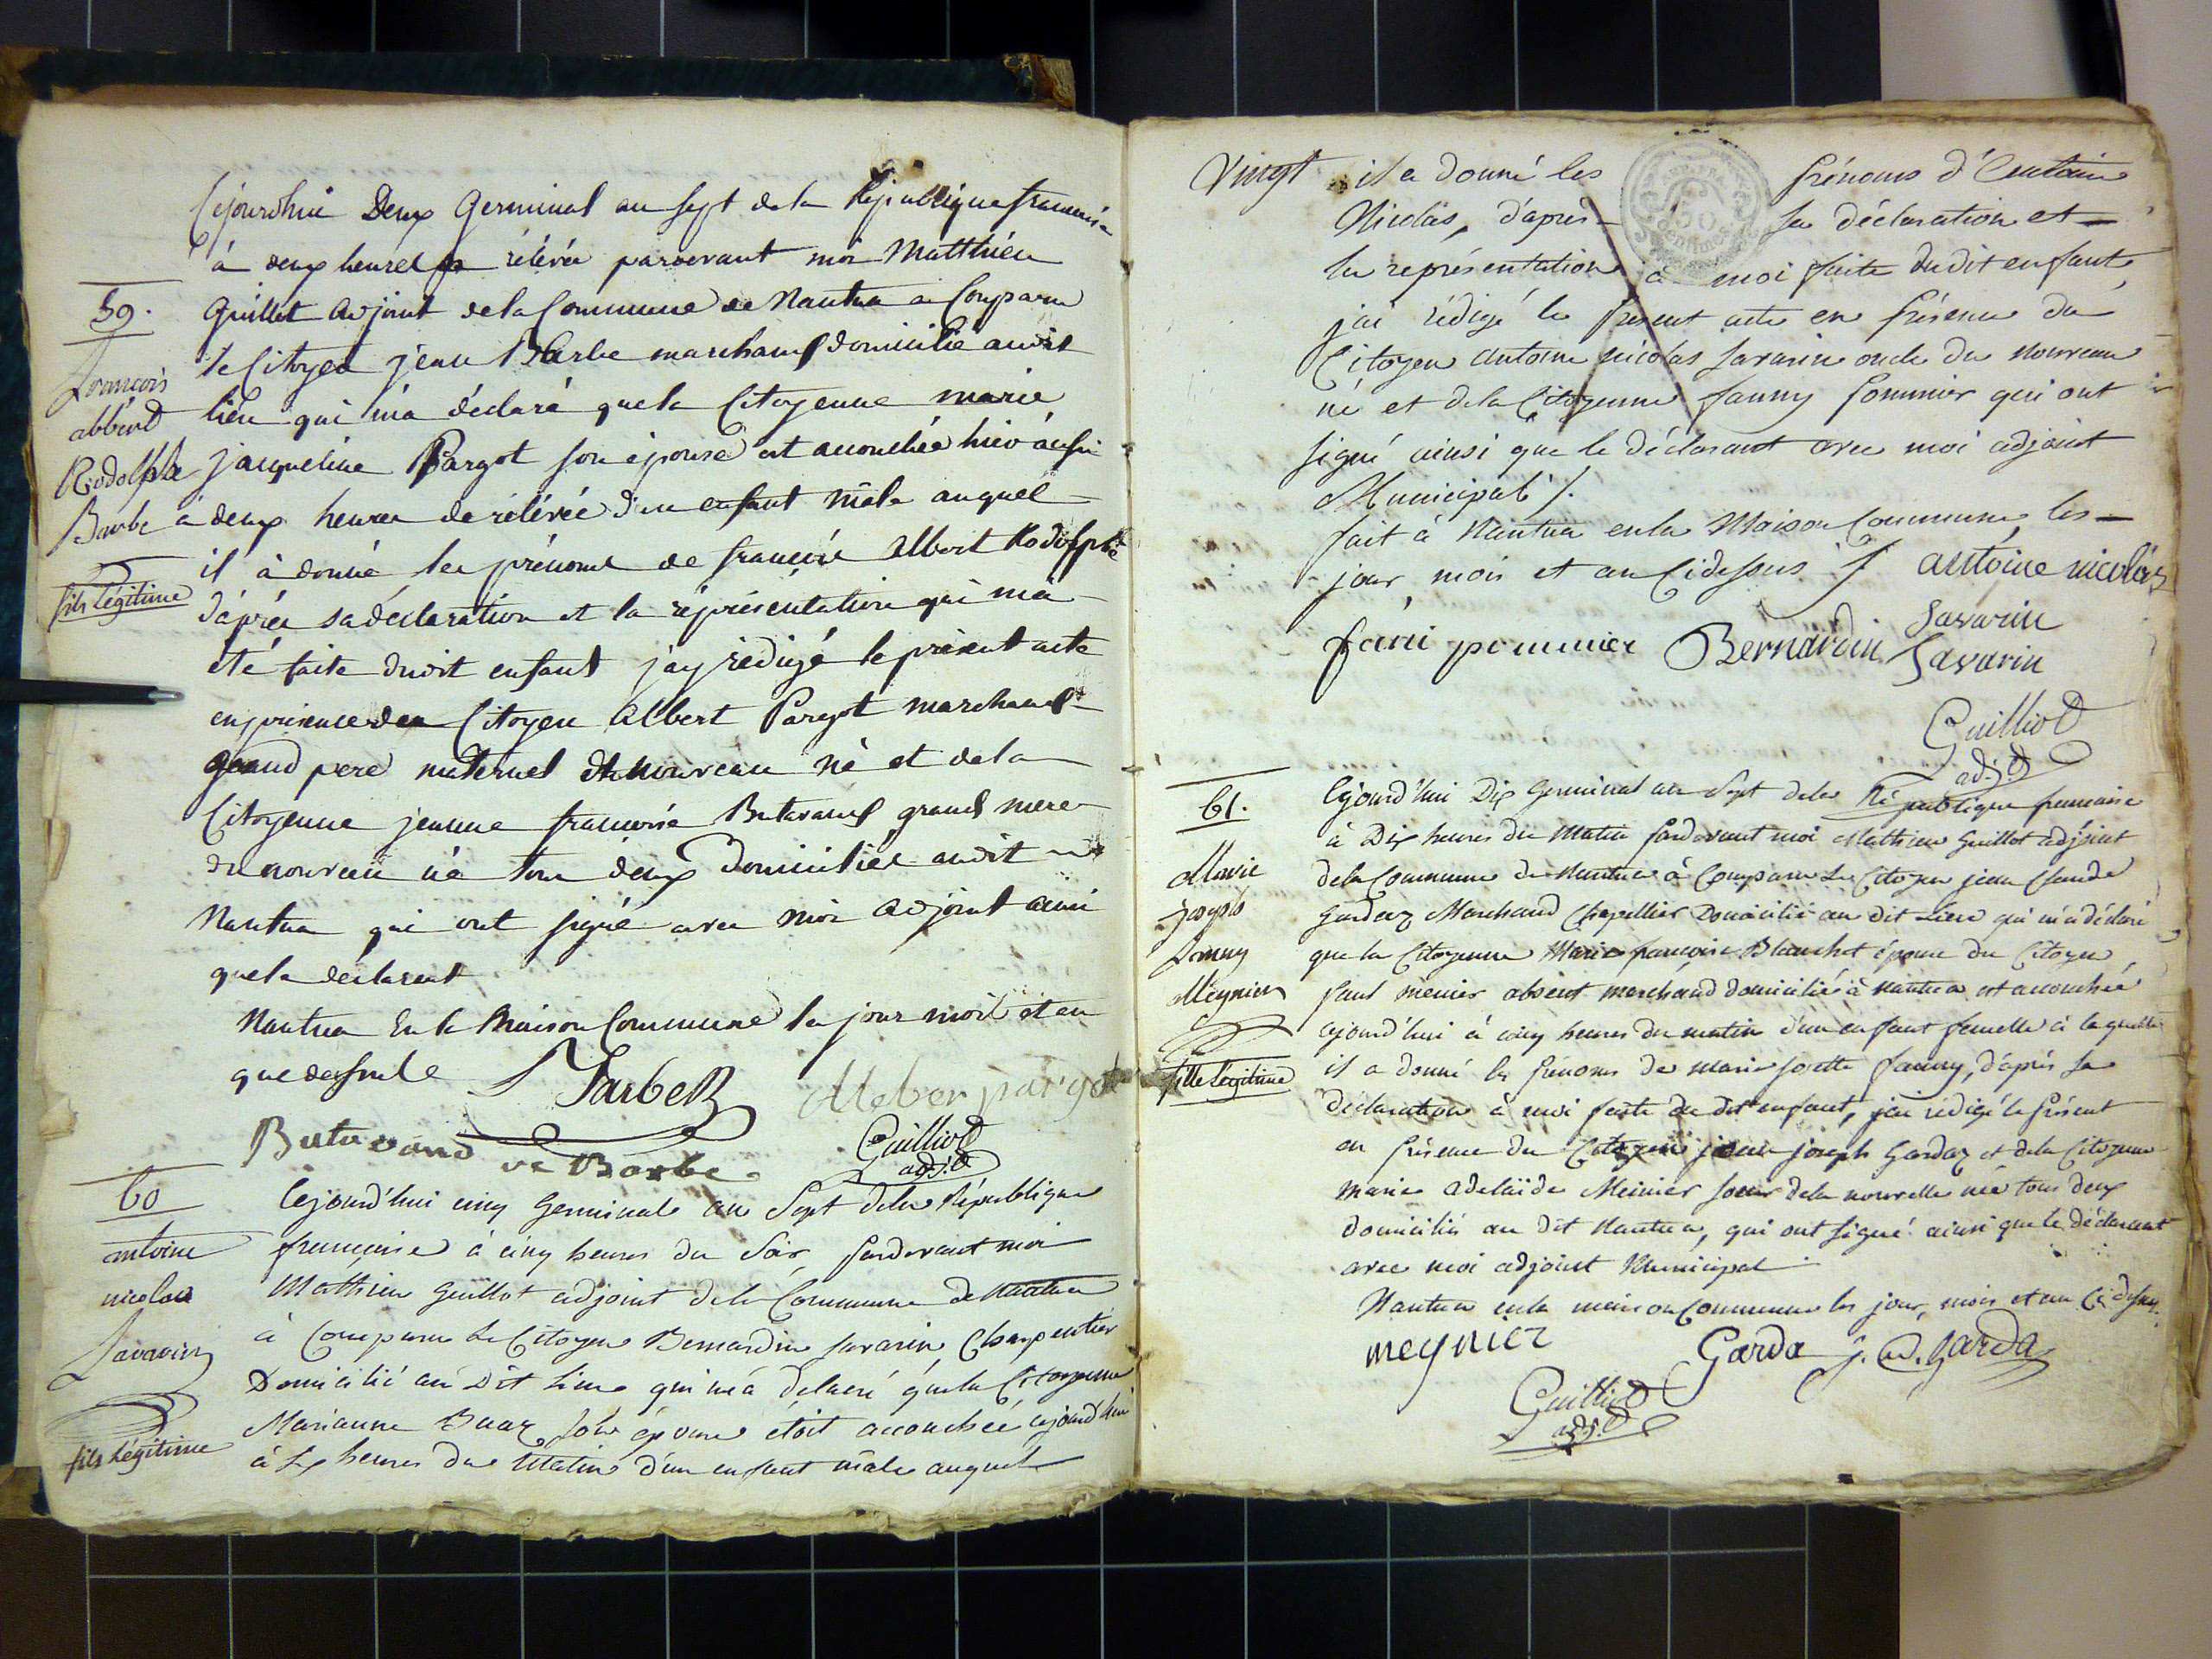 Cejourdhui Deux Germinal an sept de la République francaise
à deux heures de rélévée pardevant moi Matthieu
59.
Guillot adjoint de la Commune de Nantua a Comparu
le Citoyen jean Barbe marchand domicilié audit
françois
abbert
Rodolphe
Barbe
fils légitime
lieu qui m'a déclaré que la Citoyenne marie
jacqueline Pargot son épouse est accouchée hier
à deux heures de rélévée d'un enfant mâle auquel
il à donné les prénoms de francois Albert Rodolphe
d'après sa déclaration et la réprésentation qui m'a
été faite dudit enfant j'ay rédigé le présent acte
en présence du Citoyen Albert Pargot marchand
grand pere maternel du nouveau né et de la
Citoyenne jeanne francoise Butavand grand mere
du nouveau né tous deux domiciliés audit
Nantua qui ont signé avec moi adjoint ainsi
que le déclarant
Nantua En la Maison Commune le jour mois et an
que dessus
J Barbe
Aleber pargot
Butavand ve Barbe
Guilliot
adj.t
60
antoine
nicolas
Savarin
fils légitime
Cejourd'hui cinq Germinal an Sept de la République
française à cinq heures du Soir, pardevant moi
Mathieu Guillot adjoint de la Commune de Nantua
à Comparu le Citoyen Bernardin Savarin Charpentier
Domicilié au Dit Lieu qui m'a déclaré que la Citoyenne
Marianne Buaz son épouse étoit accouchée cejourd'hui
à heures du Matin d'un enfant mâle auquel
Vingt il a donné les prénoms d'Antoine
Nicolas, d'après sa déclaration et
la représentation à moi faite dudit enfant,
j'ai rédigé le présent acte en présence du
Citoyen antoine nicolas Savarin oncle du nouveau
né et de la Citoyenne fanny pommier qui ont
signé ainsi que le déclarant avec moi adjoint
Municipal /.
fait à Nantua en la Maison Commune les
jour, mois et an Cidessus /
antoine nicolas
Savarin
fani pommier Bernardin Savarin
Guilliot
adj.t
61.
Marie
Joseph
fanny
Meynier
fille légitime
Cejourd'hui Dix Germinal an Sept de la République francaise
à Dix heures du Matin pardevant moi Mathieu Guillot adjoint
de la Commune de Nantua à Comparu Le Citoyen jean Claude
Gardaz Marchand Chapellier Domicilié au dit Lieu qui m'a déclaré
que la Citoyenne Marie françoise Blanchet épouse du Citoyen
Paul meinier absent marchand domicilié à Nantua est accouchée
cejourd'hui à cinq heures du matin d'un enfant femelle à laquelle
il a donné les prénoms de marie Josette fanny, d'après sa
déclaration à moi faite du dit enfant, j'ai rédigé le présent
en présence du Citoyen joseph Gardaz et de la Citoyenne
marie adelaïde Meinier soeur de la nouvelle née tous deux
domiciliés au dit Nantua, qui ont signé ainsi que le déclarant
avec moi adjoint Municipal
Nantua en la maison Commune les jour, mois et an Cidessus.
meynier
Garda
j. Garda
Guilliot
adj.t